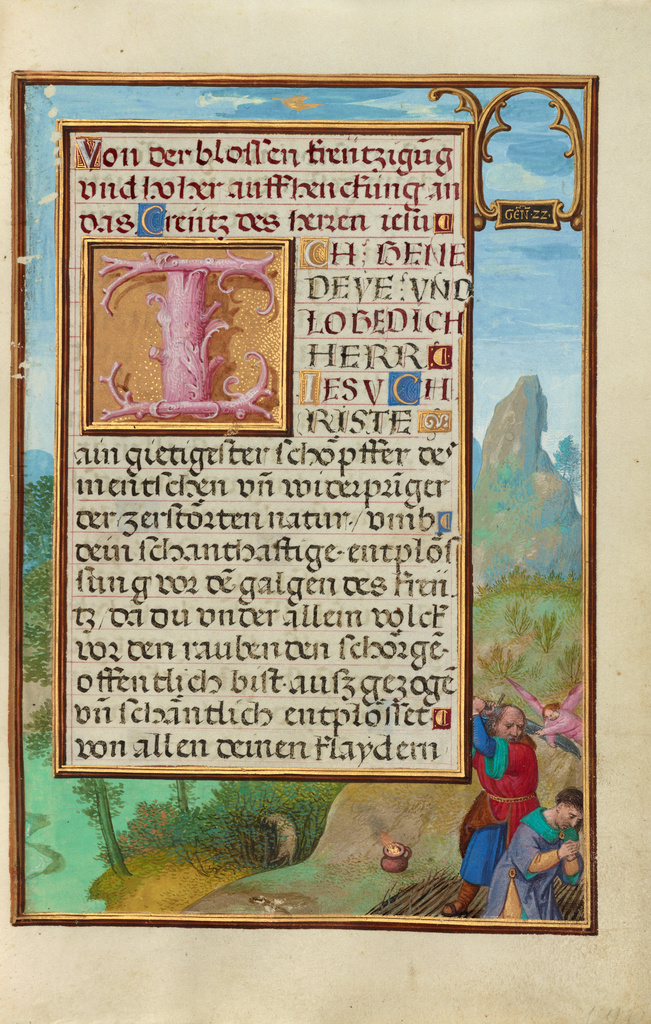 Von der blossen kreützigūg
vnd hoher auffhenckung an
das Creütz des herren iesu
GEÑ·22·
ICH BENE
DEYE VND
LOBEDICH
HERR
IESV CH
RISTE
ain gietigester schöpffer des
mentschen vn̄ widerprīger
der/zerstörten natur/vmb
dein schanthafftige entplös
sung vor dē galgen des kreü
tz/da du vnder allem volck
vor den raubenden schörgē
offentlich bist auszgezogē
vn̄ schäntlich entplösset
von allen deinen klaydern